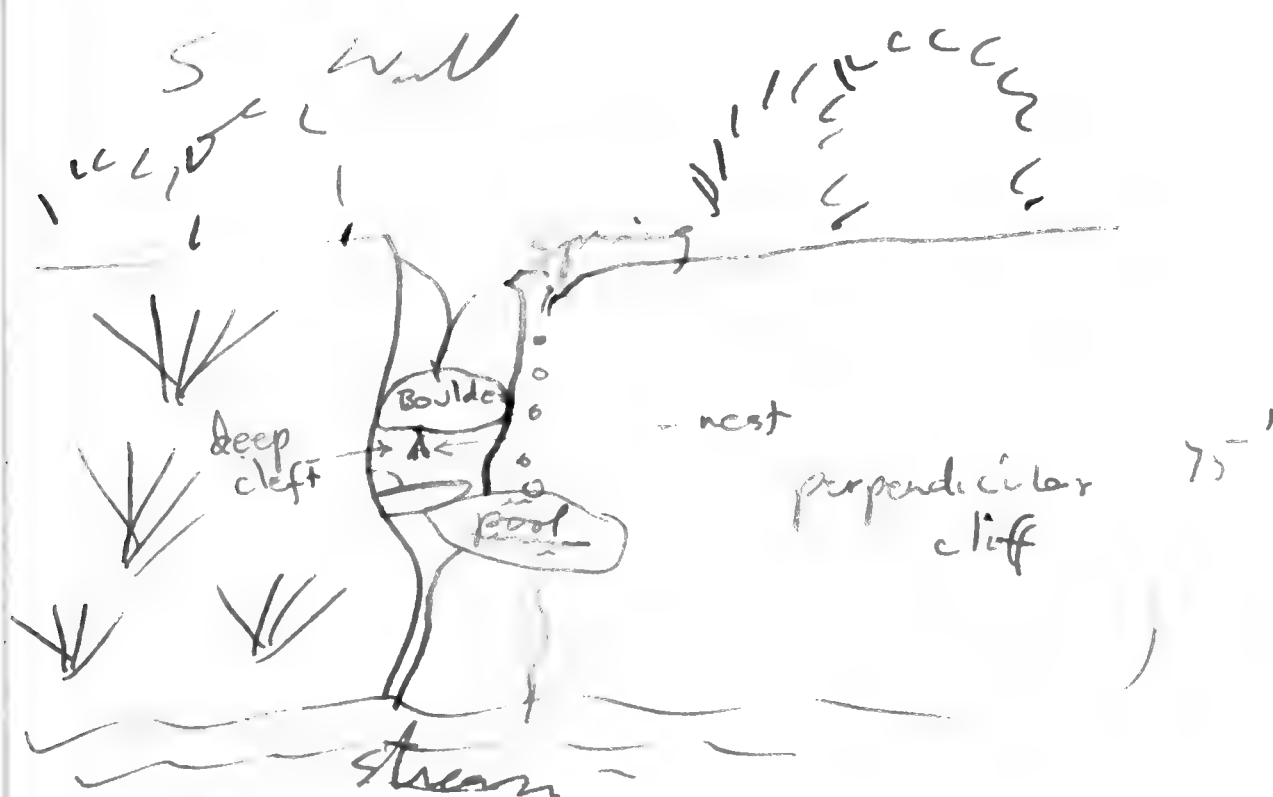 S Wall
spring
Boulder
deep
cleft
nest
75'
perpendicular
cliff
pool
stream